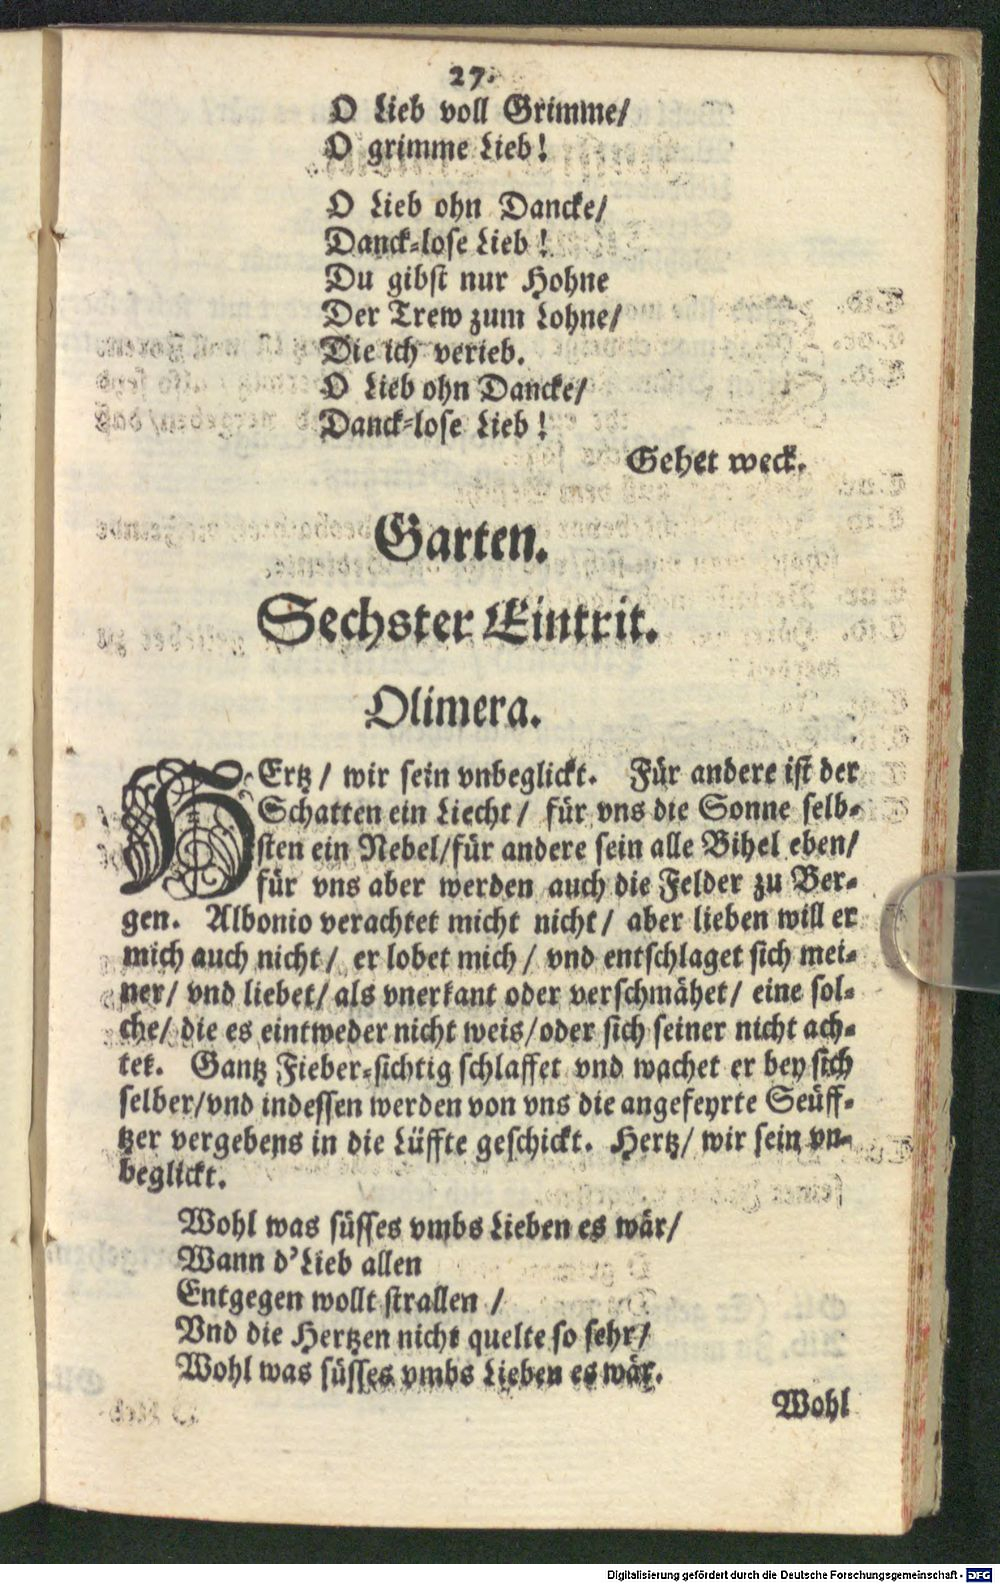 27.
O Lieb voll Grimme/
O grimme Lieb!
O Lieb ohn Dancke/
Danck-lose Lieb!
Du gibst nur Hohne
Der Trew zum Lohne/
Die ich verieb.
O Lieb ohn Dancke/
Danck-lose Lieb!
Gehet weck.
Garten.
Sechster Eintrit.
Olimera.
HErtz/ wir sein vnbeglickt. Für andere ist der
Schatten ein Liecht/ für vns die Sonne selb-
sten ein Nebel/für andere sein alle Bihel eben/
für vns aber werden auch die Felder zu Ber-
gen. Albonio verachtet micht nicht/ aber lieben will er
mich auch nicht/ er lobet mich/ vnd entschlaget sich mei-
ner/ vnd liebet/ als vnerkant oder verschmähet/ eine sol-
che/ die es eintweder nicht weis/oder sich seiner nicht ach-
tet. Gantz Fieber-sichtig schlaffet vnd wachet er bey sich
selber/vnd indessen werden von vns die angefeyrte Seüff-
tzer vergebens in die Lüffte geschickt. Hertz/ wir sein vn-
beglickt.
Wohl was süsses vmbs Lieben es wär/
Wann d'Lieb allen
Entgegen wollt strallen /
Vnd die Hertzen nicht quelte so sehr/
Wohl was süsses vmbs Lieben es wär.
Wohl
Digitalisierung gefördert durch die Deutsche Forschungsgemeinschaft - DFG